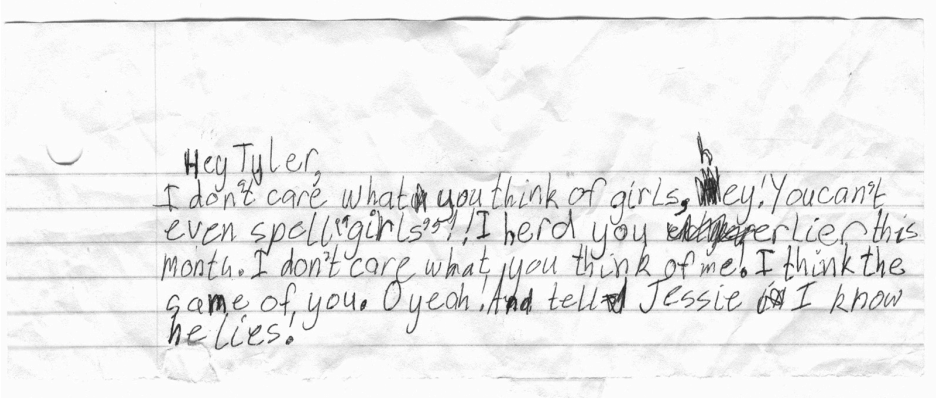 Hey Tyler,
I don't care what you think of girls, hey! You can't
even spell "girls"!! I herd you erlier this
month. I don't care what you think of me! I think the
same of you. O yeah! And tell Jessie I know
he lies!